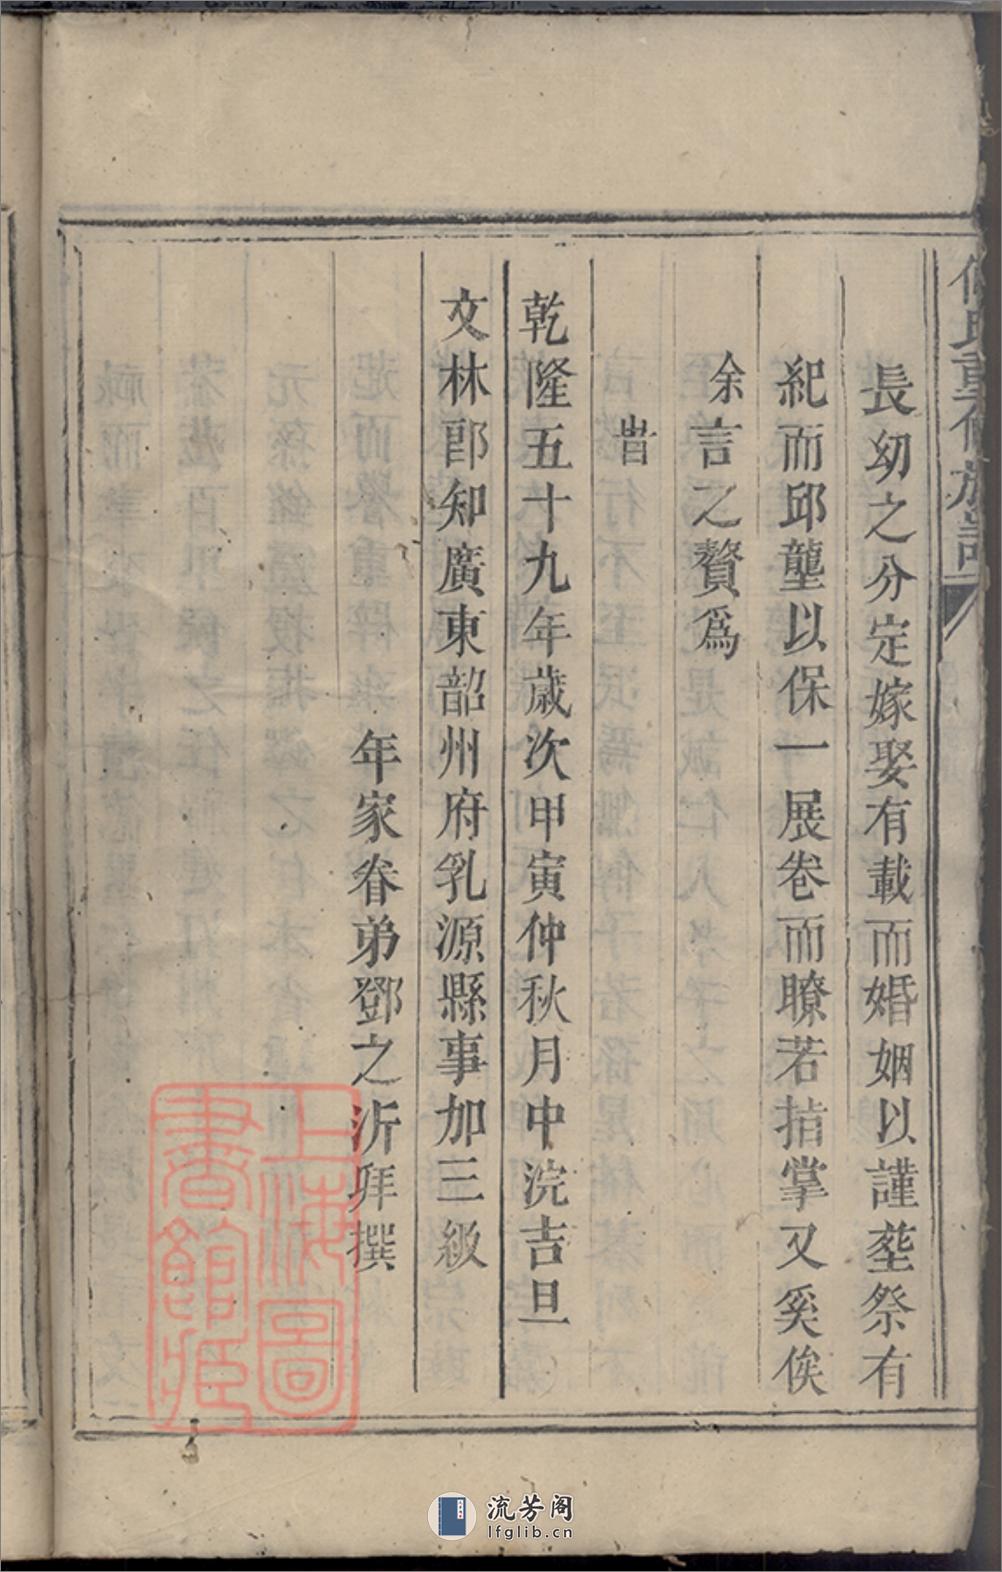 氏重修族譜
長幼之分定嫁娶有載而婚姻以謹塟祭有
紀而邱壟以保一展卷而瞭若指掌又奚俟
余言之贅爲
旹
乾隆五十九年歲次甲寅仲秋月中浣吉旦
文林郎知廣東韶州府乳源縣事加三級
年家眷弟鄧之沂拜撰
上海圖
書館藏
流芳阁
lfglib.cn